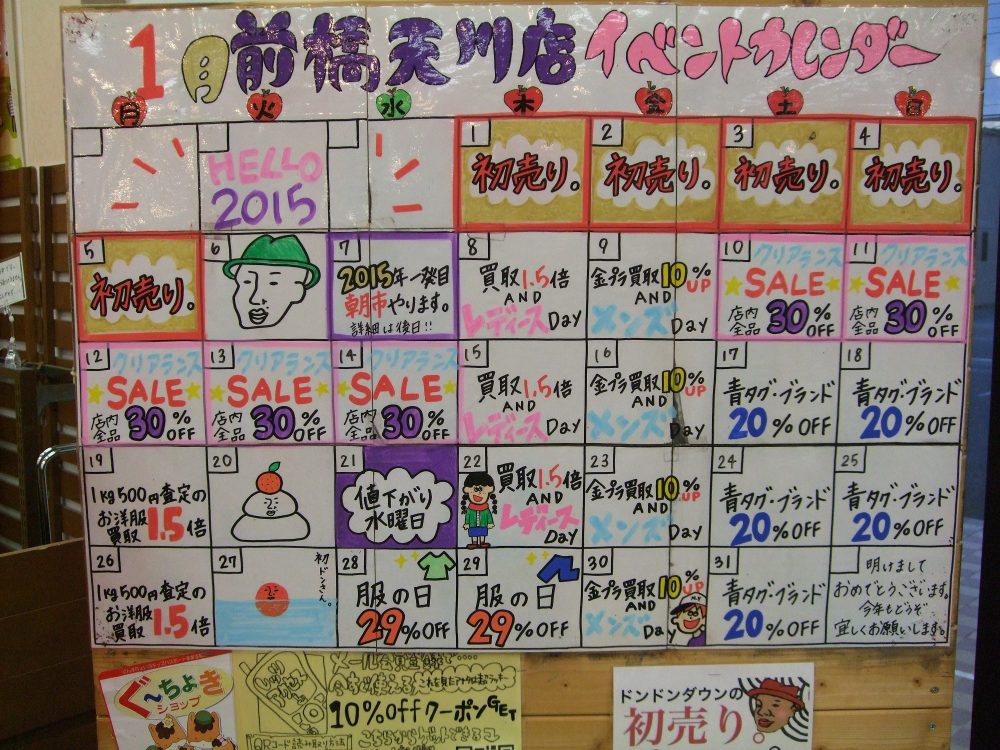 1月 前橋天川店 イベントカレンダー
月 火 水 木 金 土 日
HELLO
2015
1
初売り。
2
初売り。
3
初売り。
4
初売り。
5
初売り。
6
7
2015年一発目
朝市やります。
詳細は後日!!
8
買取1.5倍
AND
レディース Day
9
金プラ買取10%UP
AND
メンズ Day
10
クリアランス
SALE
店内全品30%OFF
11
クリアランス
SALE
店内全品30%OFF
12
クリアランス
SALE
店内全品30%OFF
13
クリアランス
SALE
店内全品30%OFF
14
クリアランス
SALE
店内全品30%OFF
15
買取1.5倍
AND
レディース Day
16
金プラ買取10%UP
AND
メンズ Day
17
青タグ・ブランド
20%OFF
18
青タグ・ブランド
20%OFF
19
1kg500円査定の
お洋服
買取1.5倍
20
21
値下がり
水曜日
22
買取1.5倍
AND
レディース
Day
23
金プラ買取10%UP
AND
メンズ Day
24
青タグ・ブランド
20%OFF
25
青タグ・ブランド
20%OFF
26
1kg500円査定の
お洋服
買取1.5倍
27
初ドンさん。
28
服の日
29%OFF
29
服の日
29%OFF
30
金プラ買取10%UP
AND
メンズ Day
31
青タグ・ブランド
20%OFF
明けまして
おめでとうございます。
今年もどうぞ
宜しくお願いします。
ぐ〜ちょき
ショップ
メール会員登録で・・・・
今すぐ使える
10%offクーポンGET
QRコード読み取り方法
こちらからゲットできるコ
ドンドンダウンの
初売り。